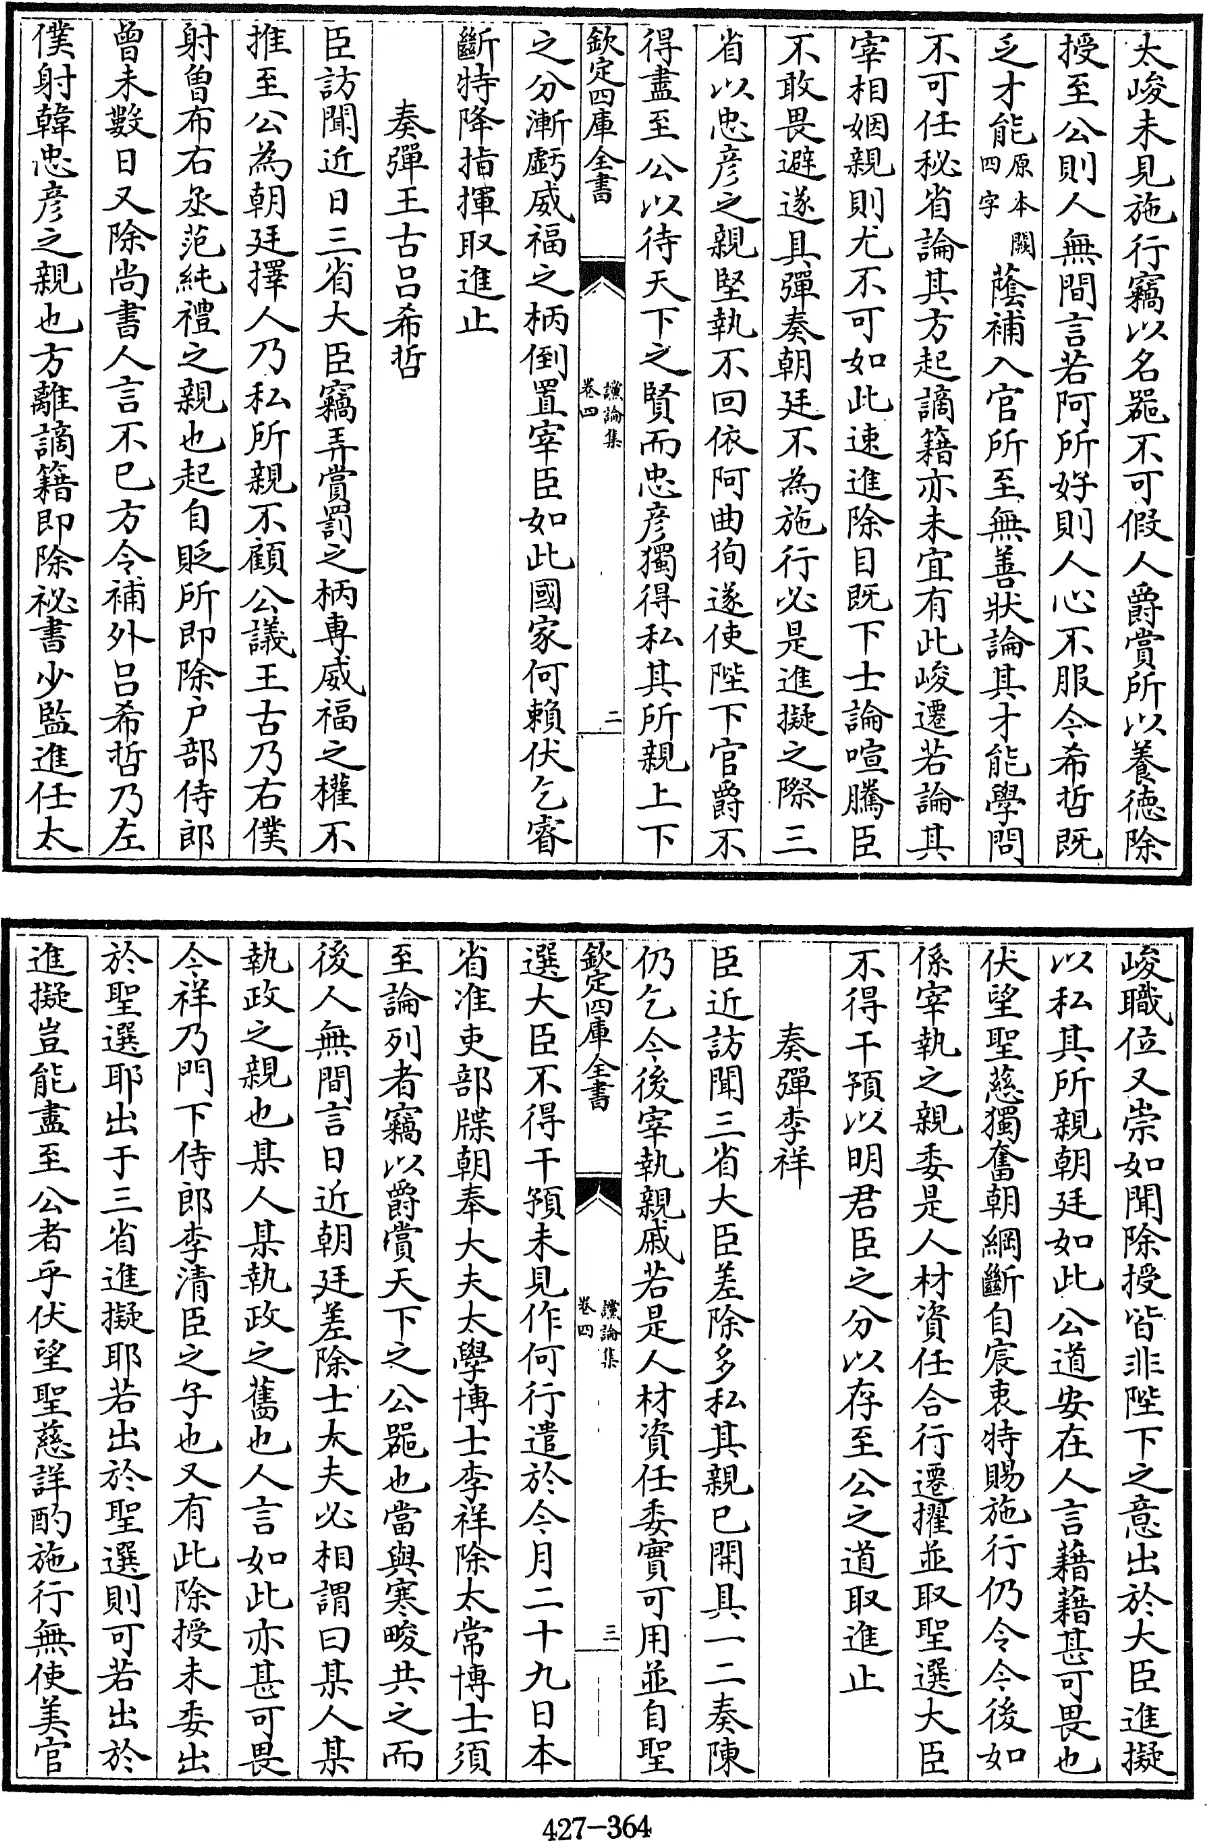 太峻未見施行竊以名器不可假人爵賞所以養德除
授至公則人無間言若阿所好則人心不服今希哲既
乏才能原本闕四字蔭補入官所至無善狀論其才能學問
不可任秘省論其方起謫籍亦未宜有此峻遷若論其
宰相姻親則尤不可如此速進除目既下士論喧騰臣
不敢畏避遂具彈奏朝廷不為施行必是進擬之際三
省以忠彦之親堅執不回依阿曲徇遂使陛下官爵不
得盡至公以待天下之賢而忠彦獨得私其所親上下
欽定四庫全書 讜論集 卷四 二
之分漸虧威福之柄倒置宰臣如此國家何賴伏乞睿
斷特降指揮取進止
奏彈王古吕希哲
臣訪聞近日三省大臣竊弄賞罰之柄專威福之權不
推至公為朝廷擇人乃私所親不顧公議王古乃右僕
射曾布右丞范純禮之親也起自貶所即除户部侍郎
曾未數日又除尚書人言不已方令補外吕希哲乃左
僕射韓忠彦之親也方離謫籍即除祕書少監進任太
峻職位又崇如聞除授皆非陛下之意出於大臣進擬
以私其所親朝廷如此公道安在人言藉藉甚可畏也
伏望聖慈獨奮朝綱斷自宸衷特賜施行仍令今後如
係宰執之親委是人材資任合行遷擢並取聖選大臣
不得干預以明君臣之分以存至公之道取進止
奏彈李祥
臣近訪聞三省大臣差除多私其親已開具一二奏陳
仍乞今後宰執親戚若是人材資任委實可用並自聖
欽定四庫全書 讜論集 卷四 三
選大臣不得干預未見作何行遣於今月二十九日本
省准吏部牒朝奉大夫太學博士李祥除太常博士須
至論列者竊以爵賞天下之公器也當與寒畯共之而
後人無間言日近朝廷差除士大夫必相謂曰某人某
執政之親也某人某執政之舊也人言如此亦甚可畏
今祥乃門下侍郎李清臣之子也又有此除授未委出
於聖選耶出于三省進擬耶若出於聖選則可若出於
進擬豈能盡至公者乎伏望聖慈詳酌施行無使美官
427-364